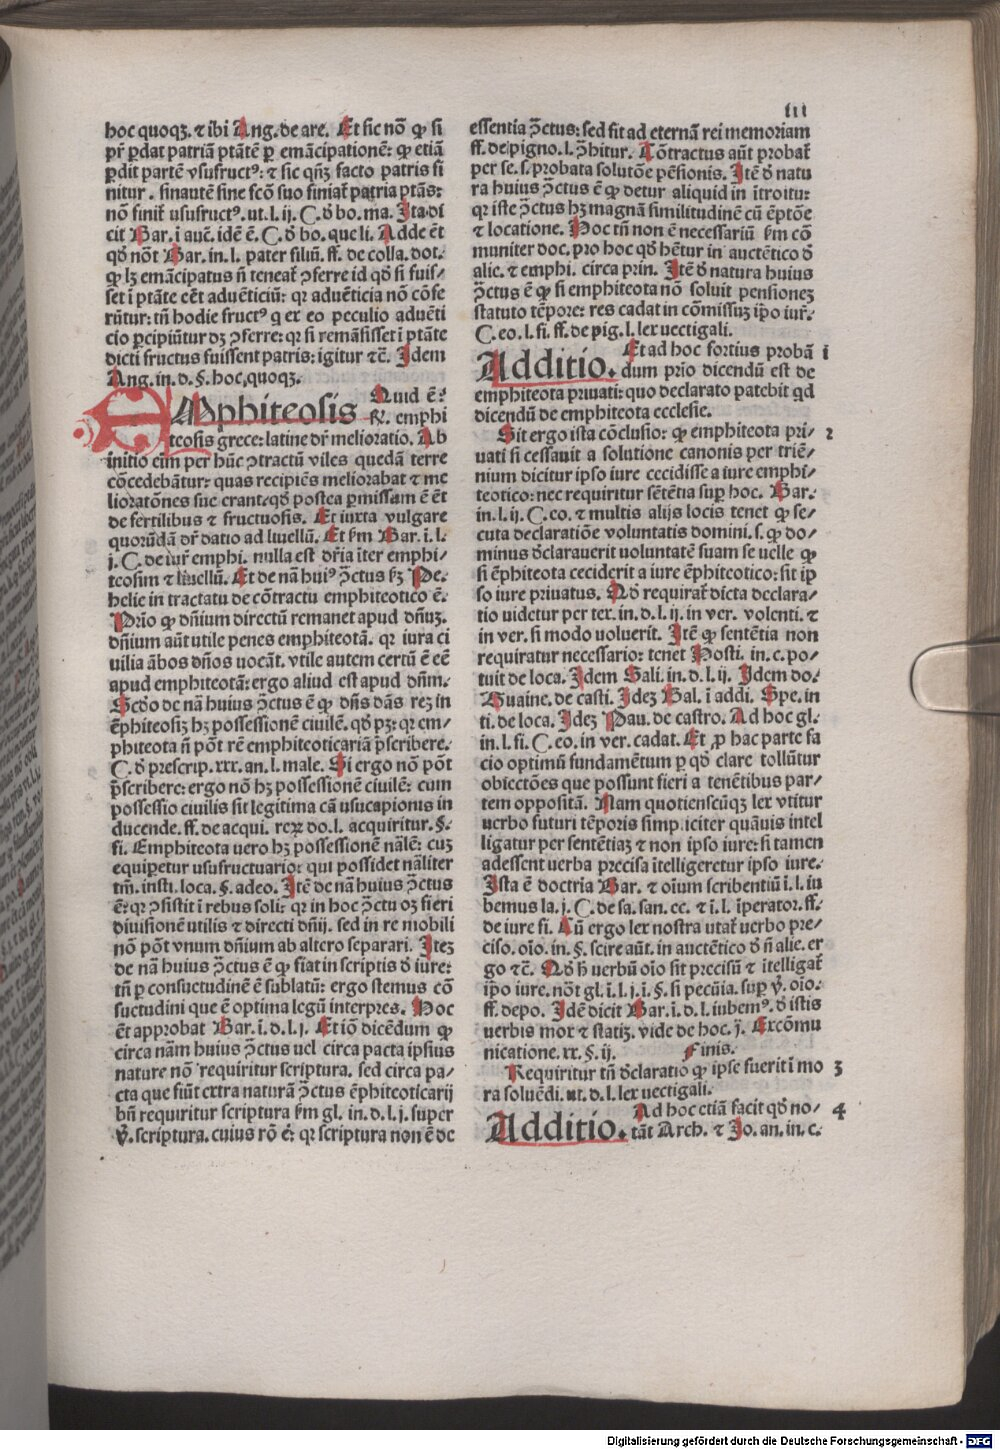 lii
hoc quoqꝫ. ⁊ ibi Ang. de are. Et sic nõ ꝙ si
pr̃ ꝑdat patriã ptãtẽ ꝑ emãcipationẽ: ꝙ etiã
ꝑdit partẽ vsufructꝰ: ⁊ sic qñꝫ facto patris fi
nitur . sinautẽ fine scõ suo finiat᷑ patria ptãs:
nõ finit᷑ usufructꝰ. ut. l. ij. C. ð bo. ma. Ita di
cit Bar. ĩ auc̃. idẽ ẽ. C. ð bo. que li. Adde ẽt
qð nõt Bar. in. l. pater filiũ. ff. de colla. dot.
ꝙ lꝫ emãcipatus ñ teneat᷑ ꝯferre id qð si fuis⸗
set ĩ ptãte eẽt aduẽticiũ: qr aduẽticia nõ cõfe
rũtur: tñ hodie fructꝰ q ex eo peculio aduẽti
cio ꝑcipiũtur dꝫ ꝯferre: qr si remãsisset ĩ ptãte
dicti fructus fuissent patris: igitur ⁊c̃. Idem
Ang. in. d. §. hoc, quoqꝫ.
EMphiteosis Quid ẽ?
R̃. emphi
teosis grece: latine dr̃ melioratio. Ab
initio eĩm per hũc ꝯtractũ viles quedã terre
cõcedebãtur: quas recipiẽs meliorabat ⁊ me
lioratões sue erant. qð postea ꝑmissum ẽ ẽt
de fertilibus ⁊ fructuosis. Et iuxta vulgare
quorũdã dr̃ datio ad liuellũ. Et ẜm Bar. ĩ. l.
j. C. de iur̃ emphi. nulla est dr̃ia ĩter emphi⸗
teosim ⁊ liuellũ. Et de nã huiꝰ ꝯ̃ctus ẜꝫ Pe.
helie in tractatu de cõtractu emphiteotico ẽ.
Prĩo ꝙ dñium directũ remanet apud dñuꝫ.
dñium aũt utile penes emphiteotã. qr iura ci
uilia ãbos dños uocãt. vtile autem certũ ẽ eẽ
apud emphiteotã: ergo aliud est apud dñm.
Scðo de nã huius ꝯ̃ctus ẽ ꝙ dñs dãs reꝫ in
ẽphiteosiꝫ hꝫ possessionẽ ciuilẽ. qð pꝫ: qr em⸗
phiteota ñ põt rẽ emphiteoticariã p̃scribere.
C. ð prescrip. xxx. an. l. male. Si ergo nõ põt
p̃scribere: ergo nõ hꝫ possessionẽ ciuilẽ: cum
possessio ciuilis sit legitima cã usucapionis in
ducende. ff. de acqui. reꝝ do. l. acquiritur. §.
fi. Emphiteota uero hꝫ possessionẽ nãlẽ: cuꝫ
equipetur usufructuario: qui possidet nãliter
tm̃. insti. loca. §. adeo. Itẽ de nã huius ꝯ̃ctus
ẽ: qr ꝯsistit ĩ rebus soli: qr in hoc ꝯ̃ctu oꝫ fieri
diuisionẽ utilis ⁊ directi dñij. sed in re mobili
nõ põt vnum dñium ab altero separari. Iteꝫ
de nã huius ꝯ̃ctus ẽ ꝙ fiat in scriptis ð iure:
tñ ꝑ consuctudinẽ ẽ sublatũ: ergo stemus cõ
suctudini que ẽ optima legũ interpres. Hoc
ẽt approbat Bar. ĩ. d. l. j. Et iõ dicẽdum ꝙ
circa nãm huius ꝯ̃ctus uel circa pacta ipsius
nature nõ requiritur scriptura. sed circa pa⸗
cta que fiũt extra naturã ꝯ̃ctus ẽphiteoticarij
bñ requiritur scriptura ẜm gl. in. d. l. j. super
v̂. scriptura. cuius rõ ẽ: qr scriptura non ẽ de
essentia ꝯ̃ctus: sed fit ad eternã rei memoriam
ff. de pigno. l. ꝯ̃hitur. Cõtractus aũt probat᷑
per se. s. probata solutõe pẽsionis. Itẽ ð natu
ra huius ꝯ̃ctus ẽ ꝙ detur aliquid in ĩtroitu:
qr iste ꝯ̃ctus hꝫ magnã similitudinẽ cũ ẽptõe
⁊ locatione. Hoc tñ non ẽ necessariũ ẜm cõ
muniter doc. pro hoc qð hẽtur in auctẽtico ð
alie. ⁊ emphi. circa prin. Itẽ ð natura huius
ꝯ̃ctus ẽ ꝙ si emphiteota nõ soluit pensioneꝫ
statuto tẽpore: res cadat in cõmissuꝫ ip̃o iur̃.
C. eo. l. fi. ff. de pig. l. lex uectigali.
Additio. Et ad hoc fortius probã 1
dum prio dicendũ est de
emphiteota priuati: quo declarato patebit qd
dicendũ de emphiteota ecclesie.
Sit ergo ista cõclusio: ꝙ emphiteota pri⸗ 2
uati si cessauit a solutione canonis per triẽ⸗
nium dicitur ipso iure cecidisse a iure emphi⸗
teotico: nec requiritur sẽtẽtia suꝑ hoc. Bar.
in. l. ij. C. eo. ⁊ multis alijs locis tenet ꝙ se⸗
cuta declaratiõe voluntatis domini. s. ꝙ do⸗
minus ðclarauerit uoluntatẽ suam se uelle ꝙ
si ẽphiteota ceciderit a iure ẽphiteotico: sit ip
so iure priuatus. Qð requirat᷑ dicta declara⸗
tio uidetur per tex. in. d. l. ij. in ver. volenti. ⁊
in ver. si modo voluerit. Itẽ ꝙ sentẽtia non
requiratur necessario: tenet Hosti. in. c. po⸗
tuit de loca. Idem Sali. in. d. l. ij. Idem do.
Suaine. de casti. Ideꝫ Bal. ĩ addi. Spe. in
ti. de loca. Ideꝫ Pau. de castro. Ad hoc gl.
in. l. fi. C. eo. in ver. cadat. Et ꝓ hac parte fa
cio optimũ fundamẽtum ꝑ qð clare tollũtur
obiectões que possunt fieri a tenẽtibus par⸗
tem oppositã. Nam quotienscũqꝫ lex vtitur
uerbo futuri tẽporis simp iciter quãuis intel
ligatur per sentẽtiaꝫ ⁊ non ipso iure: si tamen
adessent uerba precisa ĩtelligeretur ipso iure.
Ista ẽ doctria Bar. ⁊ oĩum scribentiũ ĩ. l. iu
bemus la. j. C. de sa. san. ec. ⁊ ĩ. l. ĩperator. ff.
de iure fi. Cũ ergo lex nostra utat᷑ uerbo pre⸗
ciso. oĩo. in. §. scire aũt. in auctẽtico ð ñ alie. er
go ⁊c̃. Qð h̃ uerbũ oĩo sit precisũ ⁊ ĩtelligat᷑
ip̃o iure. nõt gl. ĩ. l. j. ĩ. §. si pecũia. suꝑ v̂. oĩo.
ff. depo. Idẽ dicit Bar. ĩ. d. l. iubemꝰ. ð istis
uerbis mox ⁊ statiꝫ. vide de hoc. j̃. Excõmu
nicatione. xx. §. ij. Finis.
Requiritur tñ ðclaratio ꝙ ipse fuerit ĩ mo 3
ra soluẽdi. ut. d. l. lex uectigali.
Additio. Ad hoc etiã facit qð no⸗ 4
tãt Arch. ⁊ Jo. an. in. c.
Digitalisierung gefördert durch die Deutsche Forschungsgemeinschaft - DFG